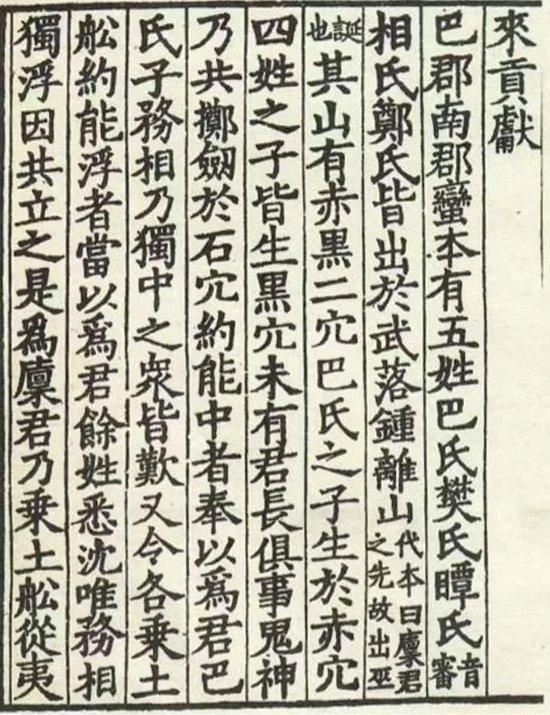 來貢獻
巴郡南郡蠻本有五姓巴氏樊氏瞫氏音審
相氏鄭氏皆出於武落鍾離山代本曰廩君之先故出巫
誕也其山有赤黑二穴巴氏之子生於赤穴
四姓之子皆生黑穴未有君長俱事鬼神
乃共擲劒於石穴約能中者奉以爲君巴
氏子務相乃獨中之衆皆歎又令各乗土
船約能浮者當以爲君餘姓悉沈唯務相
獨浮因共立之是爲廩君乃乗土船從夷